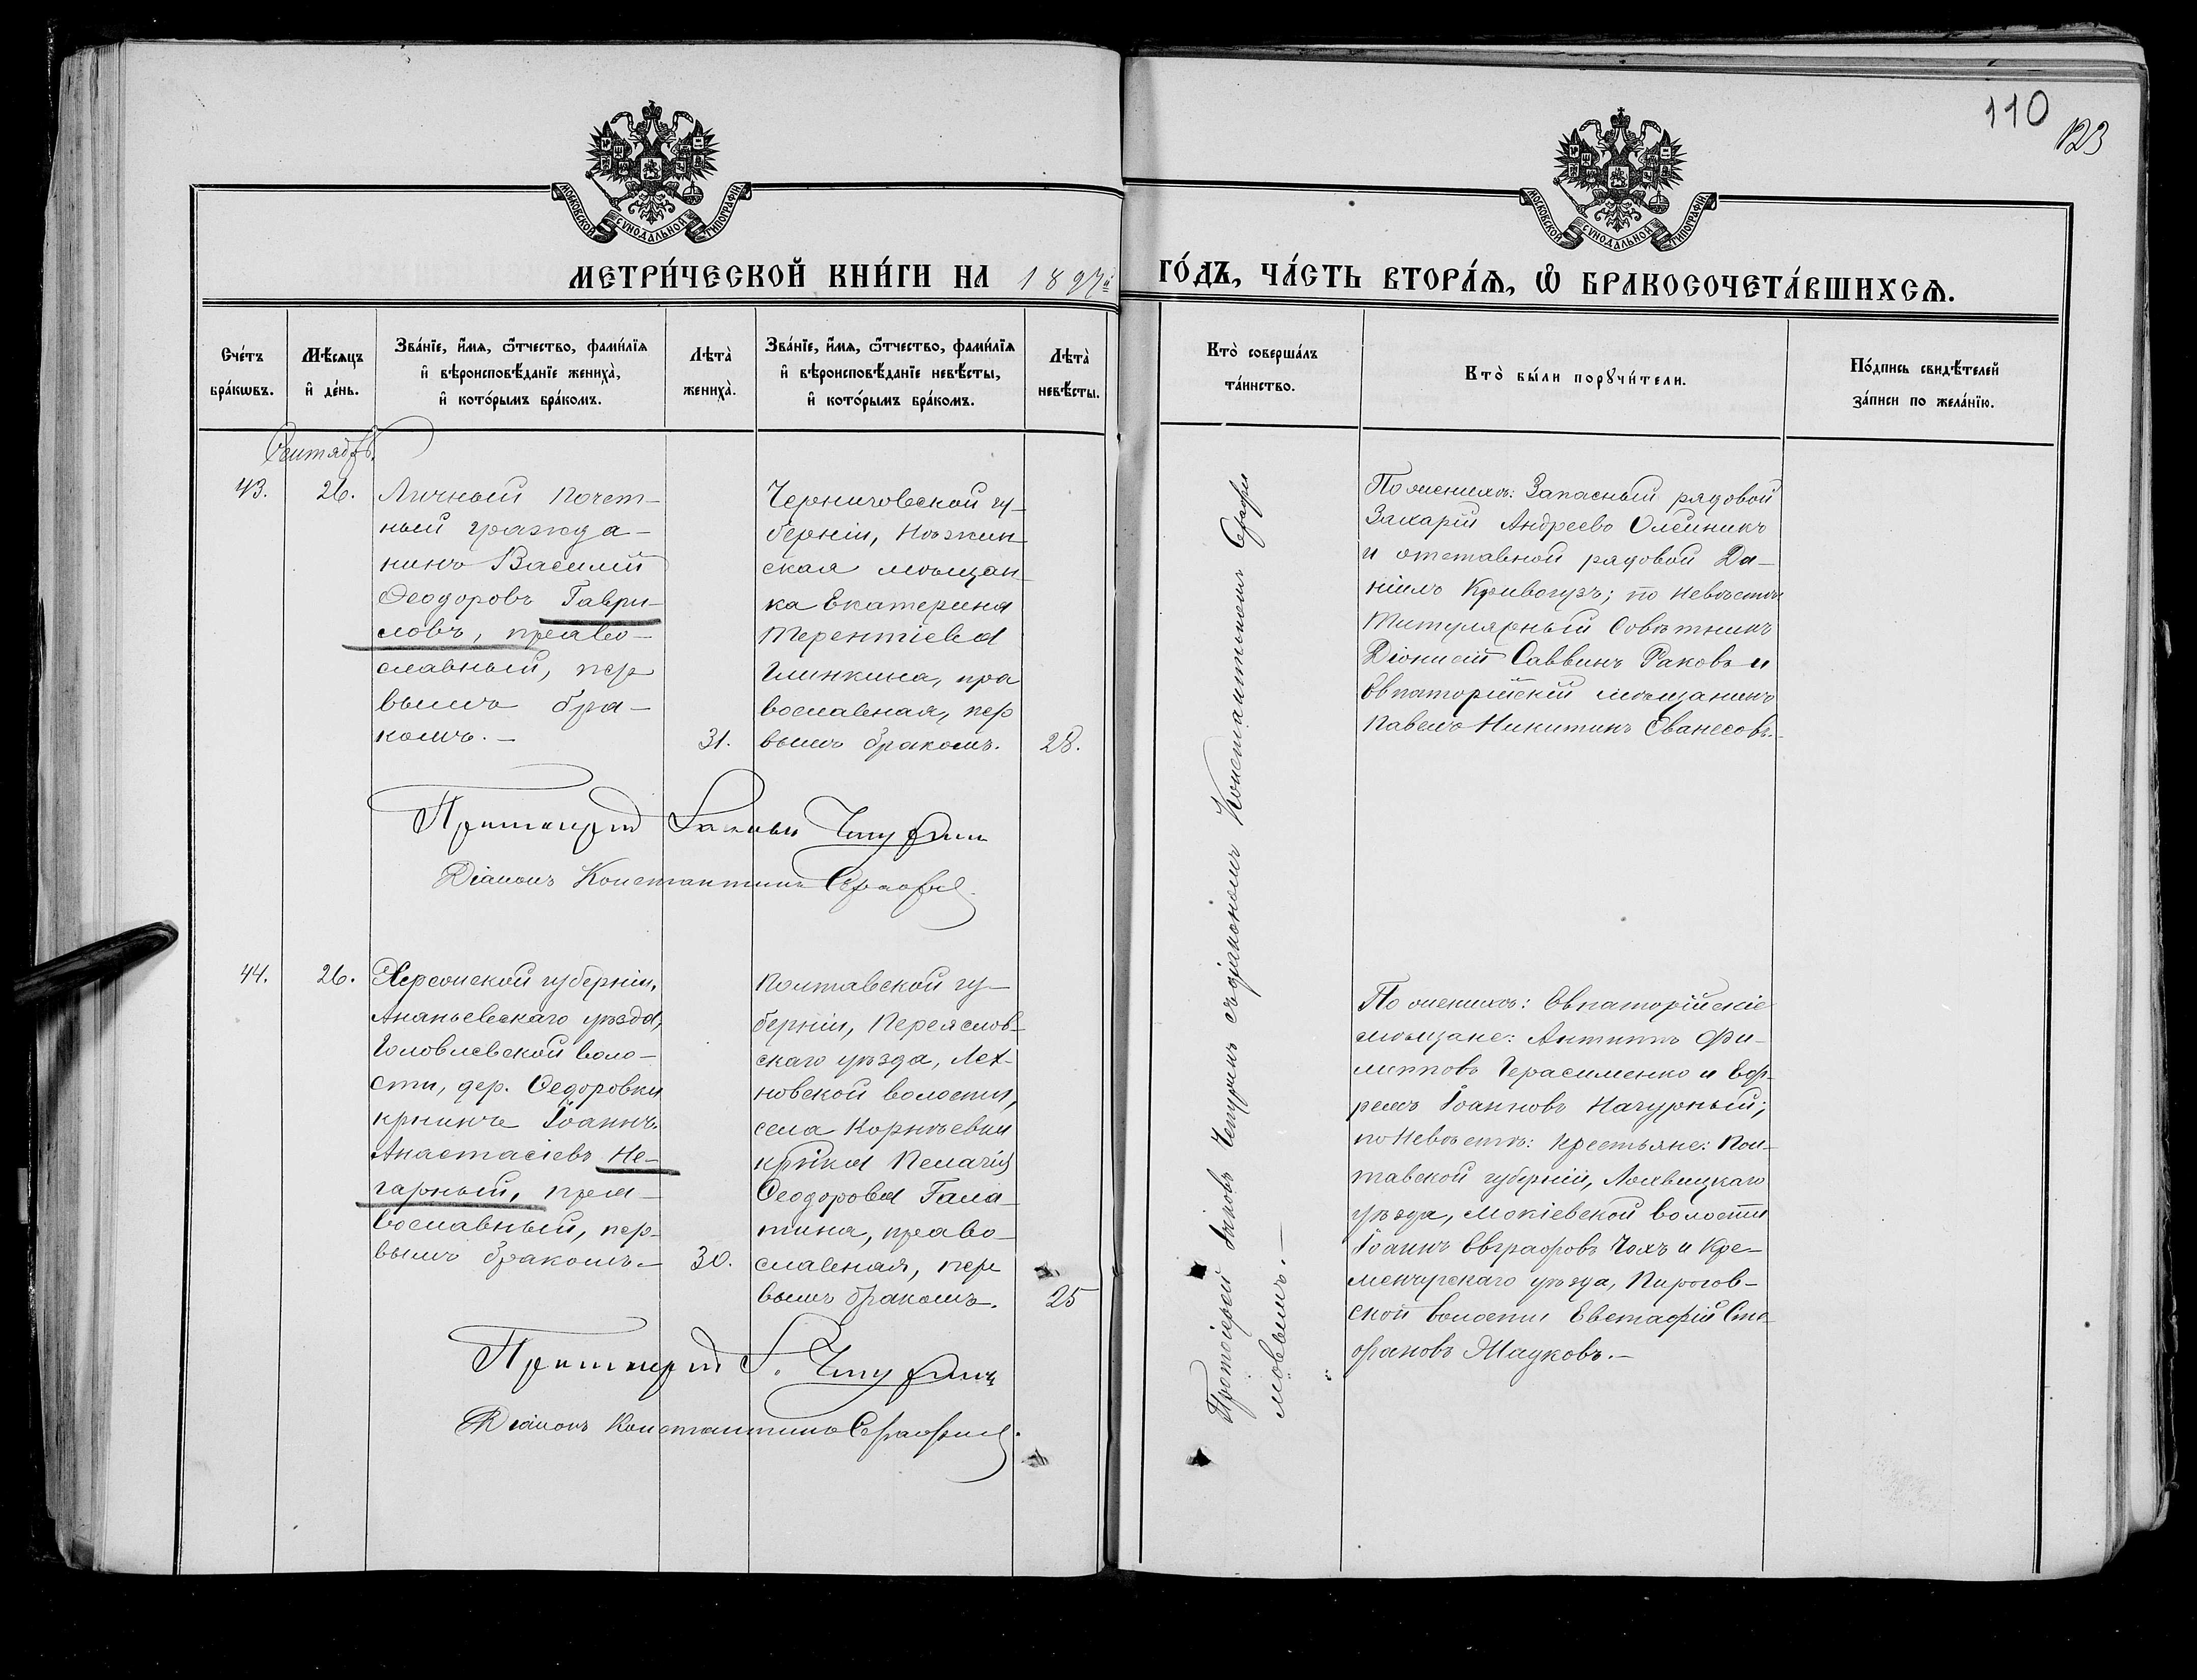 110
123
МОСКОВСКОЙ СѴНОДАЛЬНОЙ ТИПОГРАФІИ
МОСКОВСКОЙ СѴНОДАЛЬНОЙ ТИПОГРАФІИ
МЕТРИ́ЧЕСКОЙ КНИ́ГИ НА 1897й ГО́ДЪ, ЧА́СТЬ ВТОРА́Ѧ, Ѽ БРАКОСОЧЕТА́ВШИХСѦ.
Сче́тъ
бра́кѡвъ.
Мѣ́сяцъ
и҆ де́нь.
Зва́нїе, и҆́мѧ, ѻ҆́тчество, фами́лїѧ
и҆ вѣроисповѣ́данїе жениха̀,
и҆ кото́рымъ бра́комъ.
Лѣта̀
жениха̀.
Зва́нїе, и҆́мѧ, ѻ҆́тчество, фами́лїѧ
и҆ вѣроисповѣ́данїе невѣ́сты,
и҆ кото́рымъ бра́комъ.
Лѣта̀
невѣ́сты.
Кто̀ соверша́лъ
та́инство.
Кто̀ бы́ли порꙋчи́тели.
По́дпись свидѣ́телей
за́писи по жела́нїю.
Сентябрь.
43.
26.
Личный почет-
ный гражда-
нинъ Василій
Ѳеодоровъ Гаври-
ловъ, право-
славный, пер
вымъ бра-
комъ.-
31.
Черниговской гу-
берніи, Нѣжин
ская мѣщан-
ка Екатерина
Терентіева
Глинкина, пра
вославная, пер
вымъ бракомъ.
28.
По женихѣ: Запасный рядовой
Захарій Андреевъ Олейникъ
и отставной рядовой Да-
ніилъ Кривогузъ; по невѣстѣ
Титулярный Совѣтникъ
Діонисій Саввинъ Раковъ и
Евпаторійскій мѣщанинъ
Павелъ Никитинъ Еванесовъ.
Протоіерей Іаковъ Чепуринъ
Діаконъ Константинъ Серафимовъ
44.
26.
Херсонской губерніи,
Ананьевскаго уѣзда,
Головлевской воло-
сти, дер. Ѳедоровки
кр҃нинъ Іоаннъ
Анастасіевъ Не-
гарный, пра-
вославный, пер-
вымъ бракомъ.-
30.
Полтавской гу-
берніи, Переяслов-
скаго уѣзда, Лех-
новской волости,
села Корнѣевки
кр҃нка Пелагія
Ѳеодорова Гала-
тина, право-
славная, пер
вымъ бракомъ.
25
По женихѣ: Евпаторійскіе
мѣщане: Антипъ Фи-
липповъ Герасименко и Еф-
ремъ Іоанновъ Нагурный;
по невѣстѣ: крестьяне: Пол-
тавской губерніи, Лохвицкаго
уѣзда, Мокіевской волости
Іоаннъ Евграфовъ Чехъ и Кре-
менчугскаго уѣзда, Пирогов-
ской волости Евстафій Сте-
фановъ Мацковъ.-
Протоіерей І. Чепуринъ
Діаконъ Константинъ Серафимовъ.
Протоіерей Іаковъ Чепуринъ съ діакономъ Константиномъ Серафи
мовымъ.-